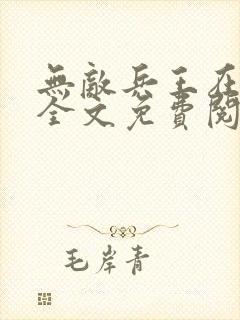 無敵兵王在
全文免費閱
毛岸青